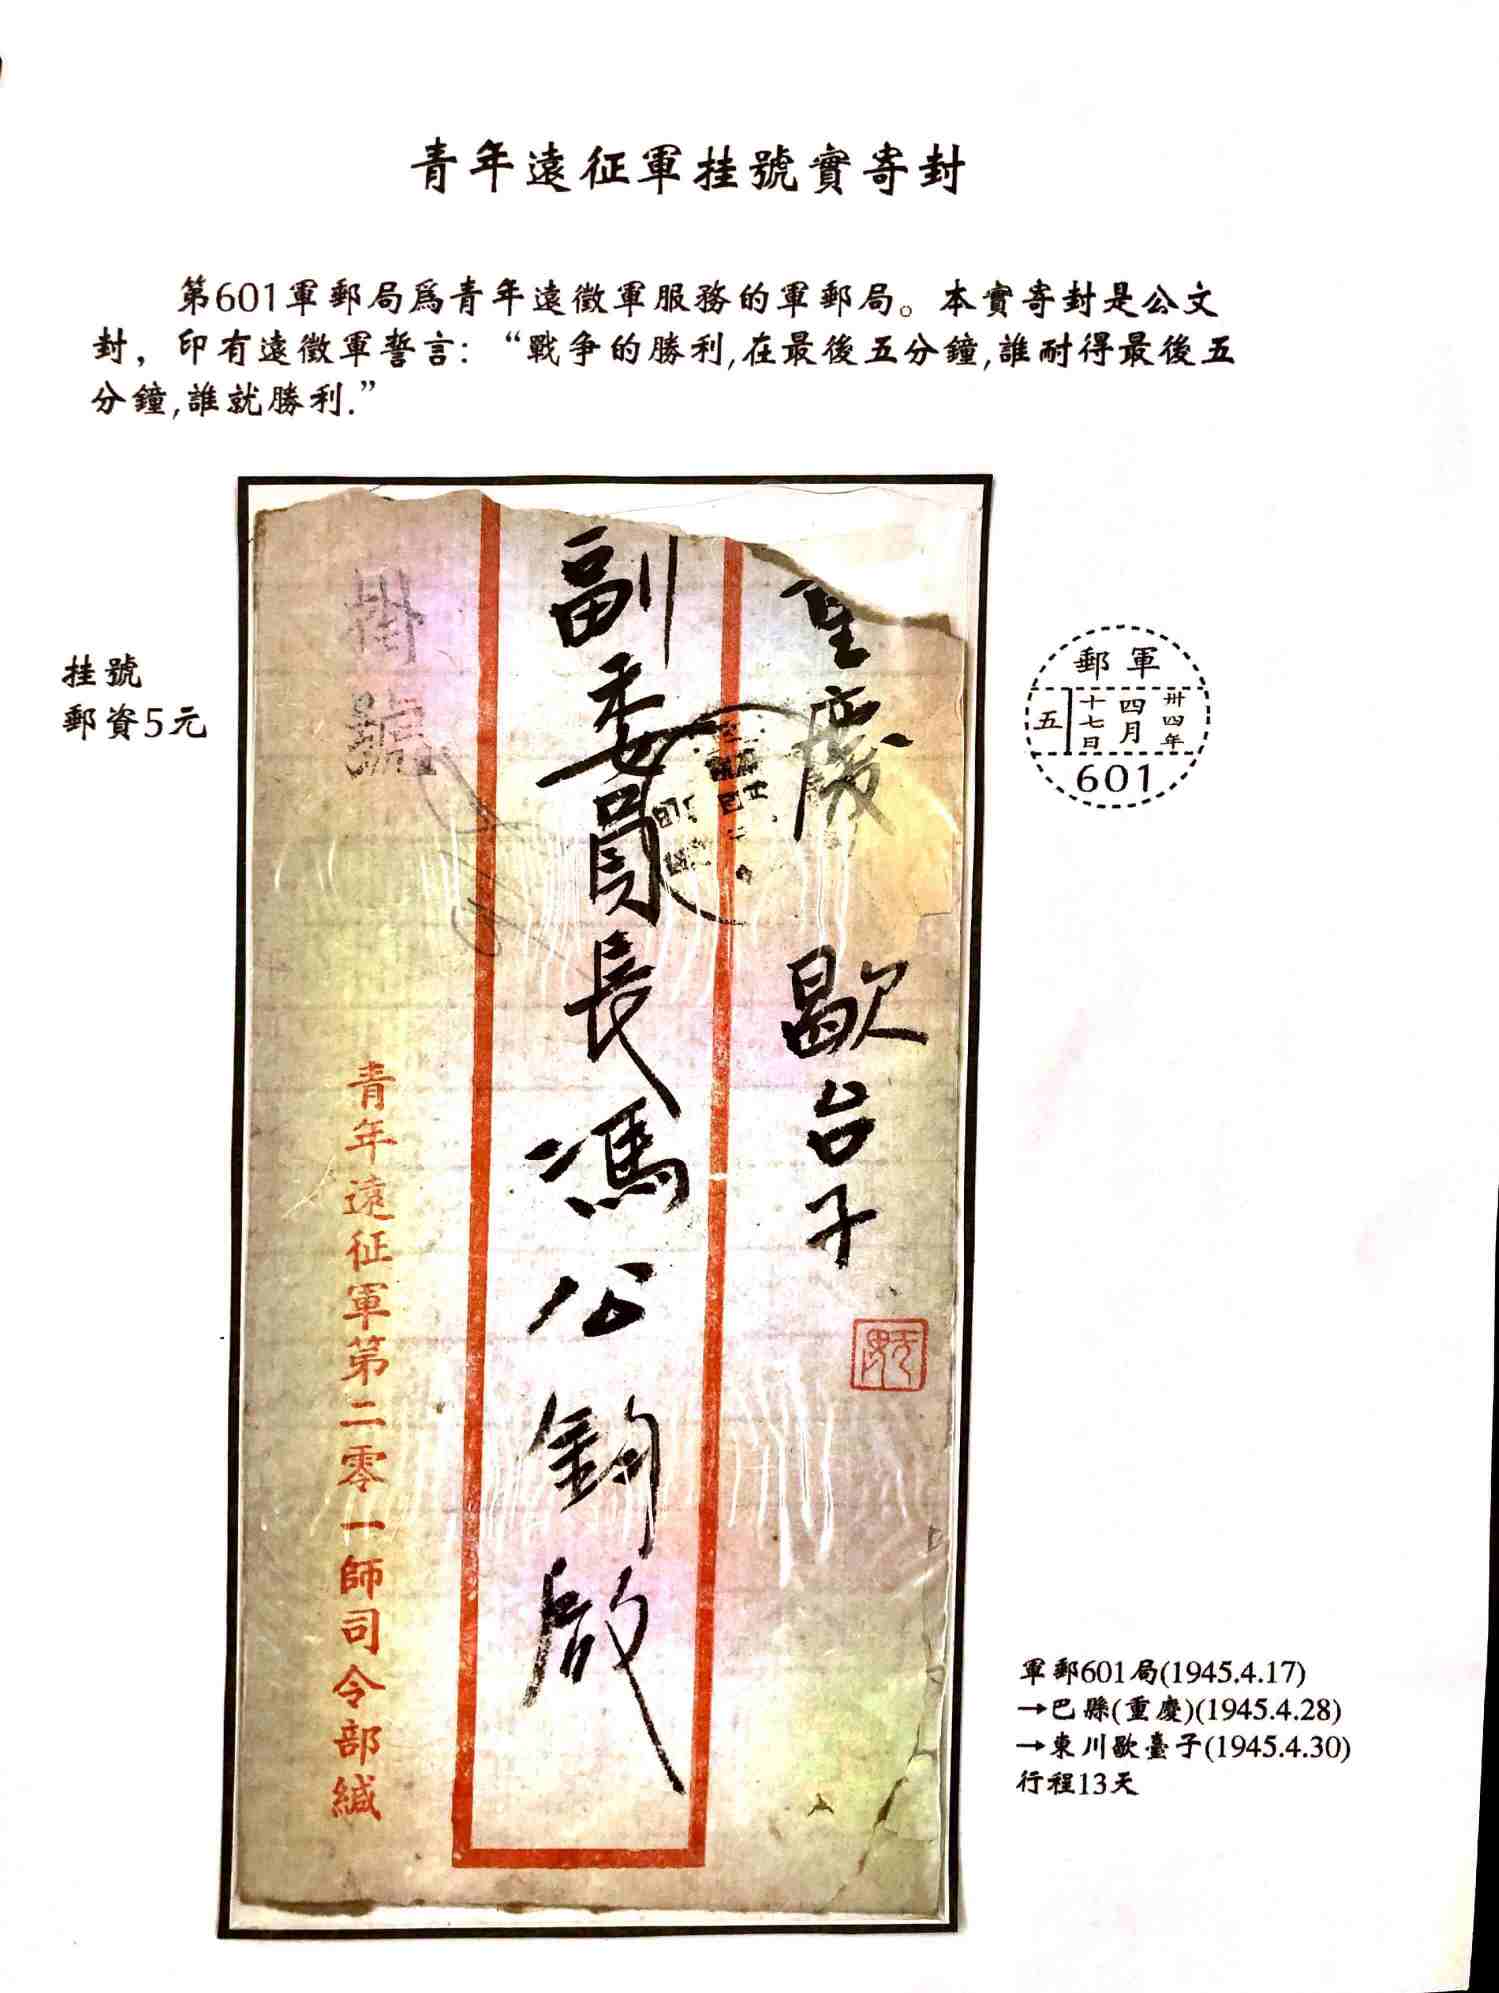 青年遠征軍挂號實寄封
第601軍郵局爲青年遠徵軍服務的軍郵局。本實寄封是公文
封，印有遠徵軍誓言：“戰争的勝利,在最後五分鐘,誰耐得最後五
分鐘,誰就勝利.”
挂號
郵資5元
重慶 歇台子
副委員長馮公鈞啟
掛號
青年遠征軍第二零一師司令部緘
郵軍
卅四年
四月
十七日
五
601
軍郵601局(1945.4.17)
→巴縣(重慶)(1945.4.28)
→東川歇臺子(1945.4.30)
行程13天